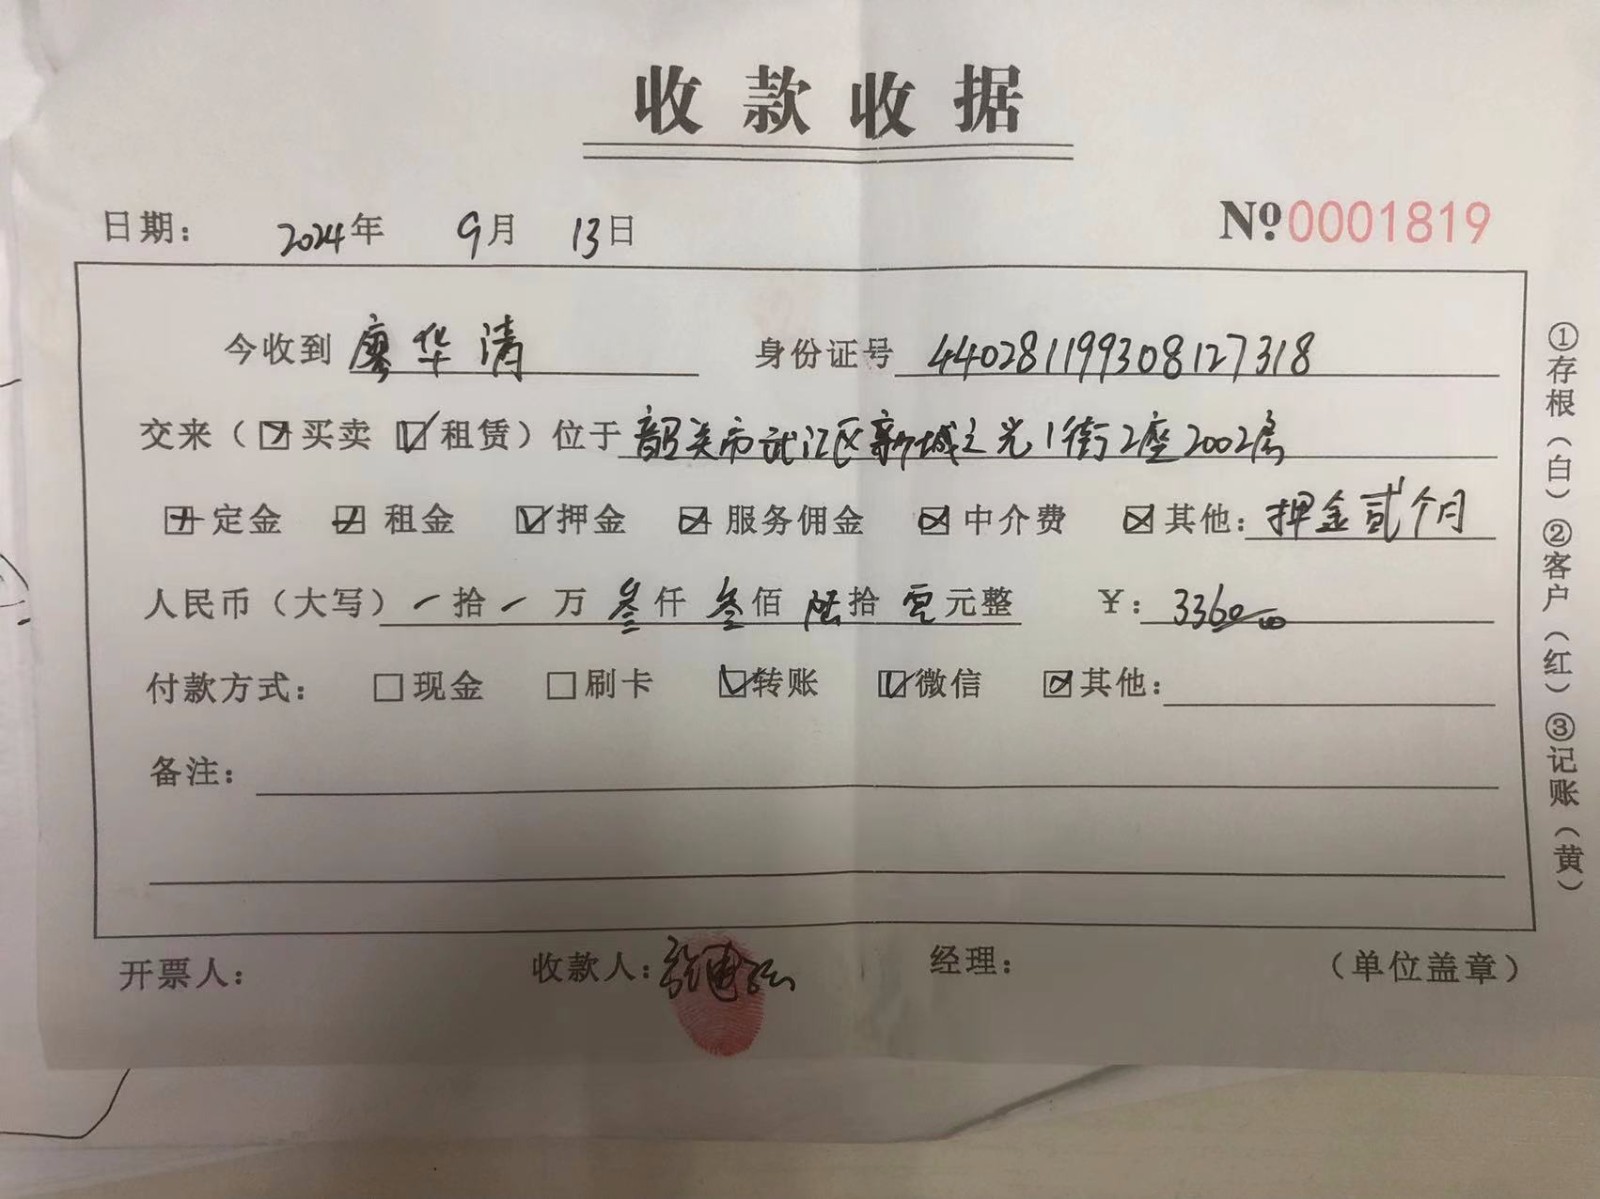 收款收据
日期： 2024年 9月 13日 №0001819
今收到 廖华清 身份证号 440281199308127318
交来（☒买卖 ☑租赁）位于 韶关市武江区新城之光1街2座2002房
☒定金 ☒租金 ☑押金 ☒服务佣金 ☒中介费 ☒其他：押金贰个月
人民币（大写） 一拾一万叁仟叁佰陆拾零元整 ￥：3360.00
付款方式： □现金 □刷卡 ☑转账 ☑微信 ☒其他：
备注：
开票人： 收款人： 经理： （单位盖章）
①存根（白）②客户（红）③记账（黄）